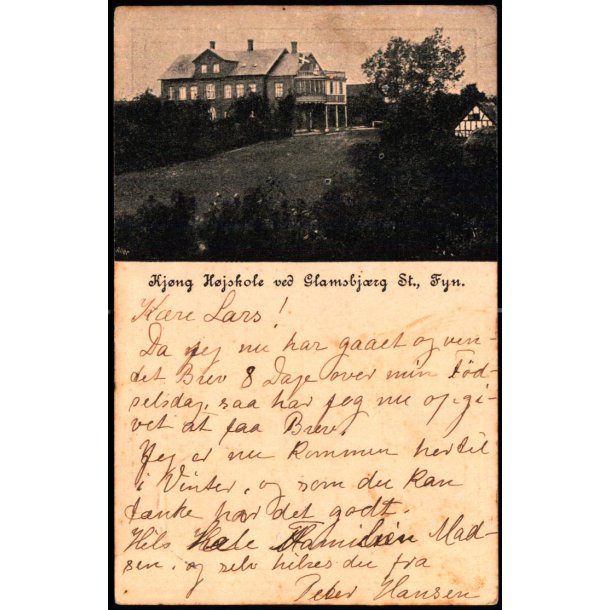 Kjøng Højskole ved Glamsbjærg St., Fyn.
Kære Lars!
Da jeg nu har gaaet og ven-
det Brev 8 Dage over min Föd-
selsdag, saa har jeg nu op gi-
vet at faa Brev.
Jeg er nu kommen hertil
i Vinter, og som du kan
tænke har det godt.
Hils Hele Familien Mad-
sen, og selv hilses du fra
Peter Hansen